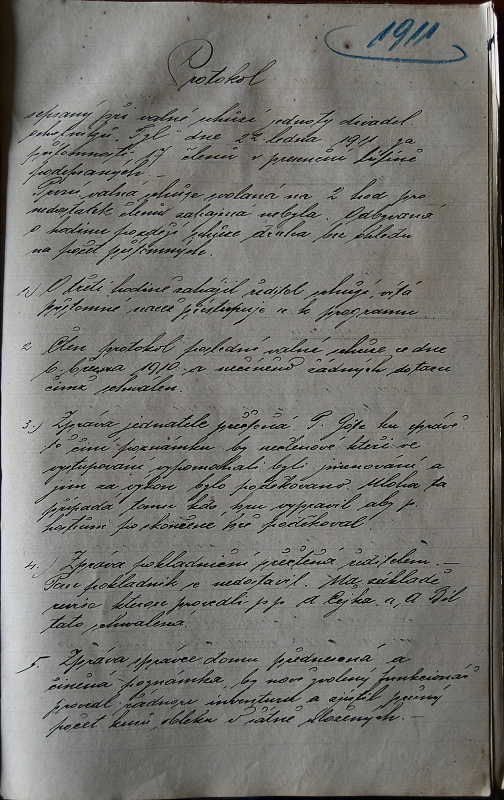 1911
Protokol
sepsaný při valné schůzi jednoty divadel.
ochotníků "Tyl" dne 22. ledna 1911 za
přítomnosti 17 členů v presenční listině
podepsaných. —
První valná schůze svolaná na 2 hod pro
nedostatek členů zahájena nebyla. Odbývaná
o hodinu později schůze držána bez ohledu
na počet přítomných.
1.) O třetí hodině zahájil ředitel schůzi, vítá
přítomné načež přistupuje se ku programu
2. Čten protokol poslední valné schůze ze dne
6. března 1910 a nečiněno žádných dotazů
čímž schválen.
3.) Zpráva jednatele přečtena. P. Göpf ku zprávě
té činí poznámku by nečlenové kteří ve
vystupování vypomáhali byli jmenováni a
jim za výkon bylo poděkováno. Úloha ta
připadá tomu kdo hru vypravil aby p.
hostům po skončené hře poděkoval.
4.) Zpráva pokladniční přečtena ředitelem. —
Pan pokladník se nedostavil. Na základě
revise kterou provedli p.p. A Cejka a A Bíl
tato schválena.
5. Zpráva správce domu přednesena a
činěna poznámka, by nově zvolený funkcionář
provedl řádnou inventuru a zjistil přesný
počet kusů obleků v sále složených. —